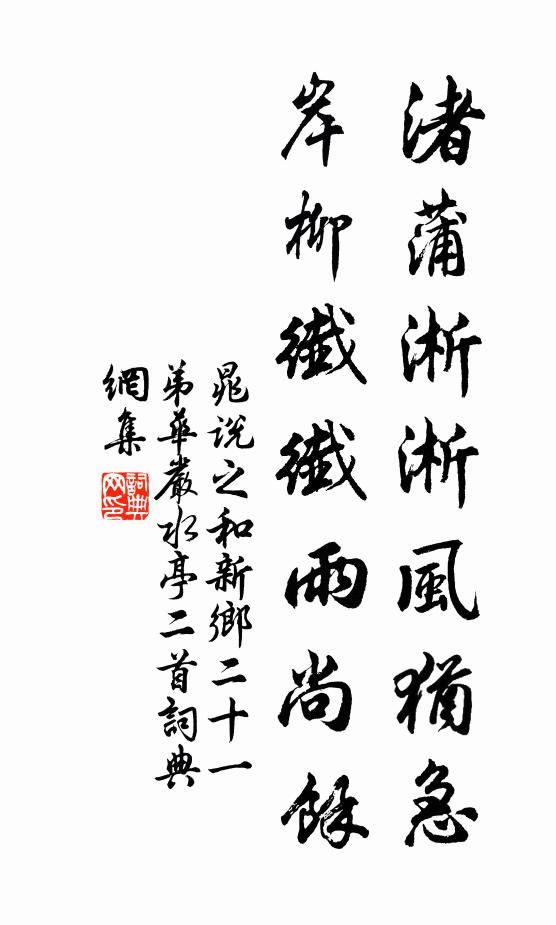 渚蒲淅淅風猶急
岸柳纖纖雨尚餘
晁說之和新鄉二十一
弟華嚴水亭二首詞典
網集
詞典
网印